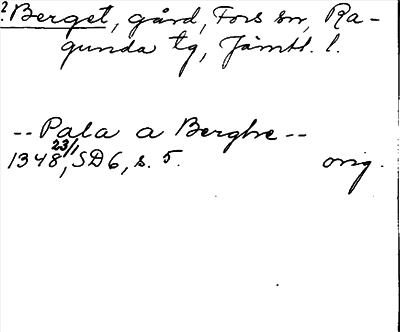 ? Berget, gård, Fors sn, Ra-
gunda tg, Jämtl. l.
-- Pala a Berghe --
1348 23/1, SD 6, s. 5. orig.